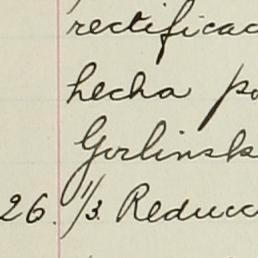 rectificac
hecha po
Gorlinsk
26. 1/3. Reducc